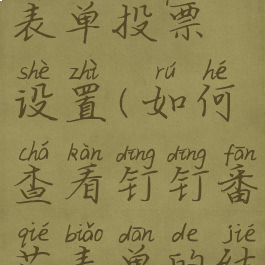 表单投票
shè zhì rú hé
设置(如何
chá kàn dīng dīng fān
查看钉钉番
qié biǎo dān de jié
茄表单的结